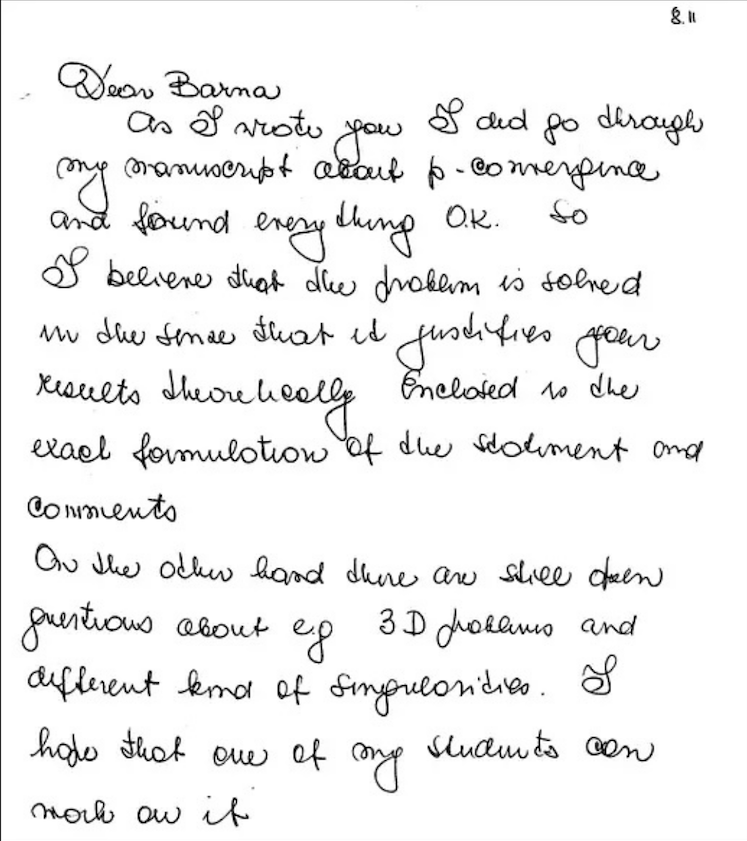 8.11
Dear Barna
As I wrote you I did go through
my manuscript about p-convergence
and found everything O.K. So
I believe that the problem is solved
in the sense that it justifies your
results theoretically Enclosed is the
exact formulation of the statement and
comments
On the other hand there are still open
questions about e.g 3D problems and
different kind of singularities. I
hope that one of my students can
work on it